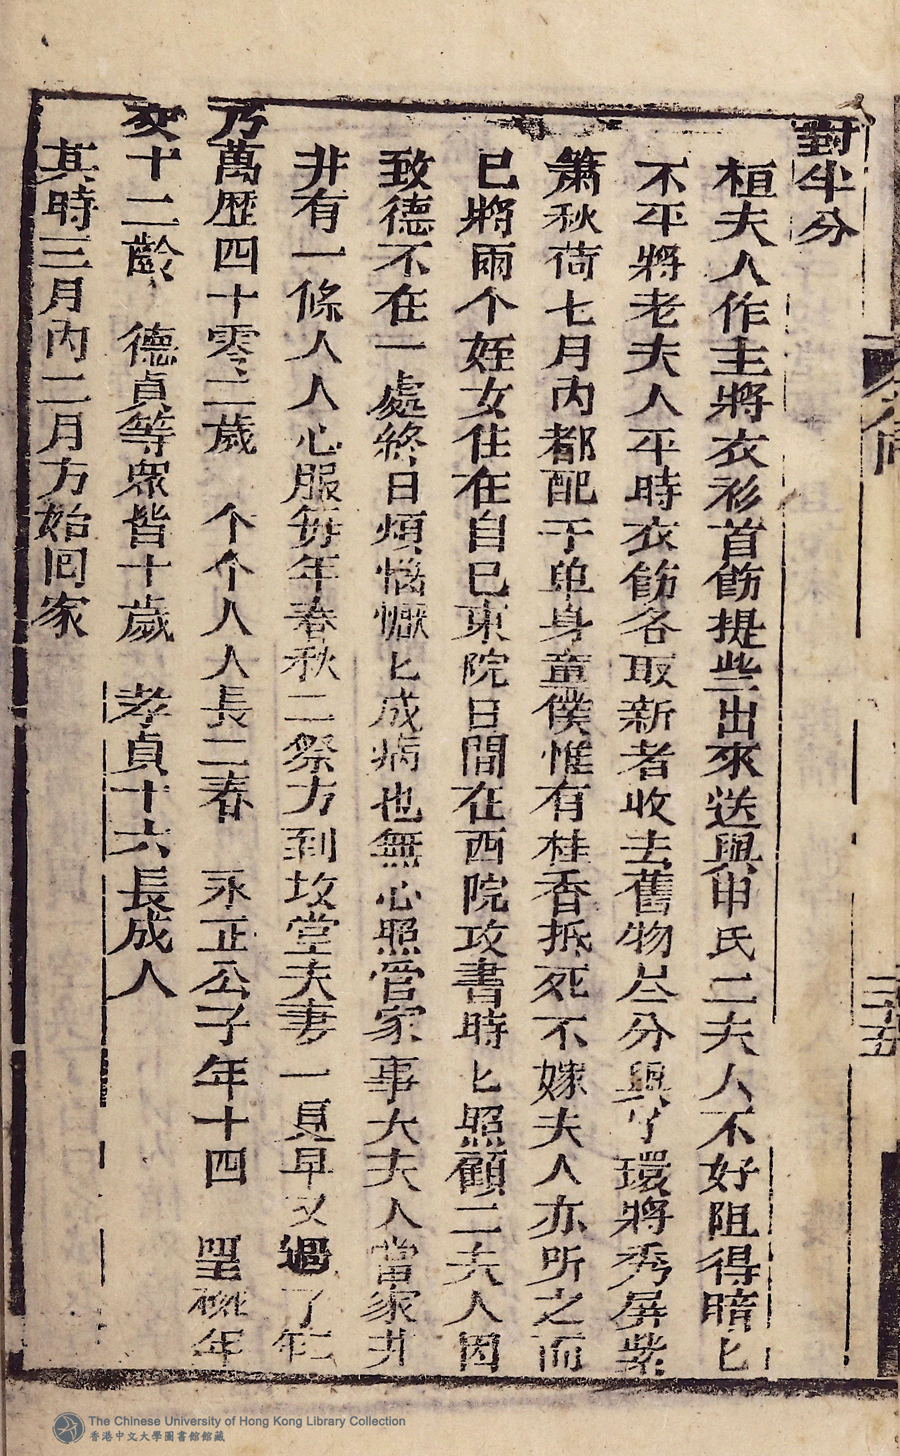 對半分
桓夫人作主將衣衫首飾提些出來送與申氏二夫人不好阻得暗匕
不平將老夫人平時衣飾各取新者收去舊物尽分與丫環將秀屏紫
簫秋荷七月内都配于单身童僕惟有桂香抵死不嫁夫人亦听之而
已將兩个姪女住在自已東院日間在西院攻書時匕照顧二夫人因
致德不在一處終日煩惱懨匕成病也無心照管家事大夫人當家井
井有一條人人心服每年春秋二祭方到坟堂夫妻一見早又過了年
乃萬歷四十零二歲 个个人人長二春 永正公子年十四 聖 年
交十二齡 德貞等眾皆十歲 孝貞十六長成人
其時三月內二月方始回家
三十五
The Chinese University of Hong Kong Library Collection
香港中文大學圖書館館藏